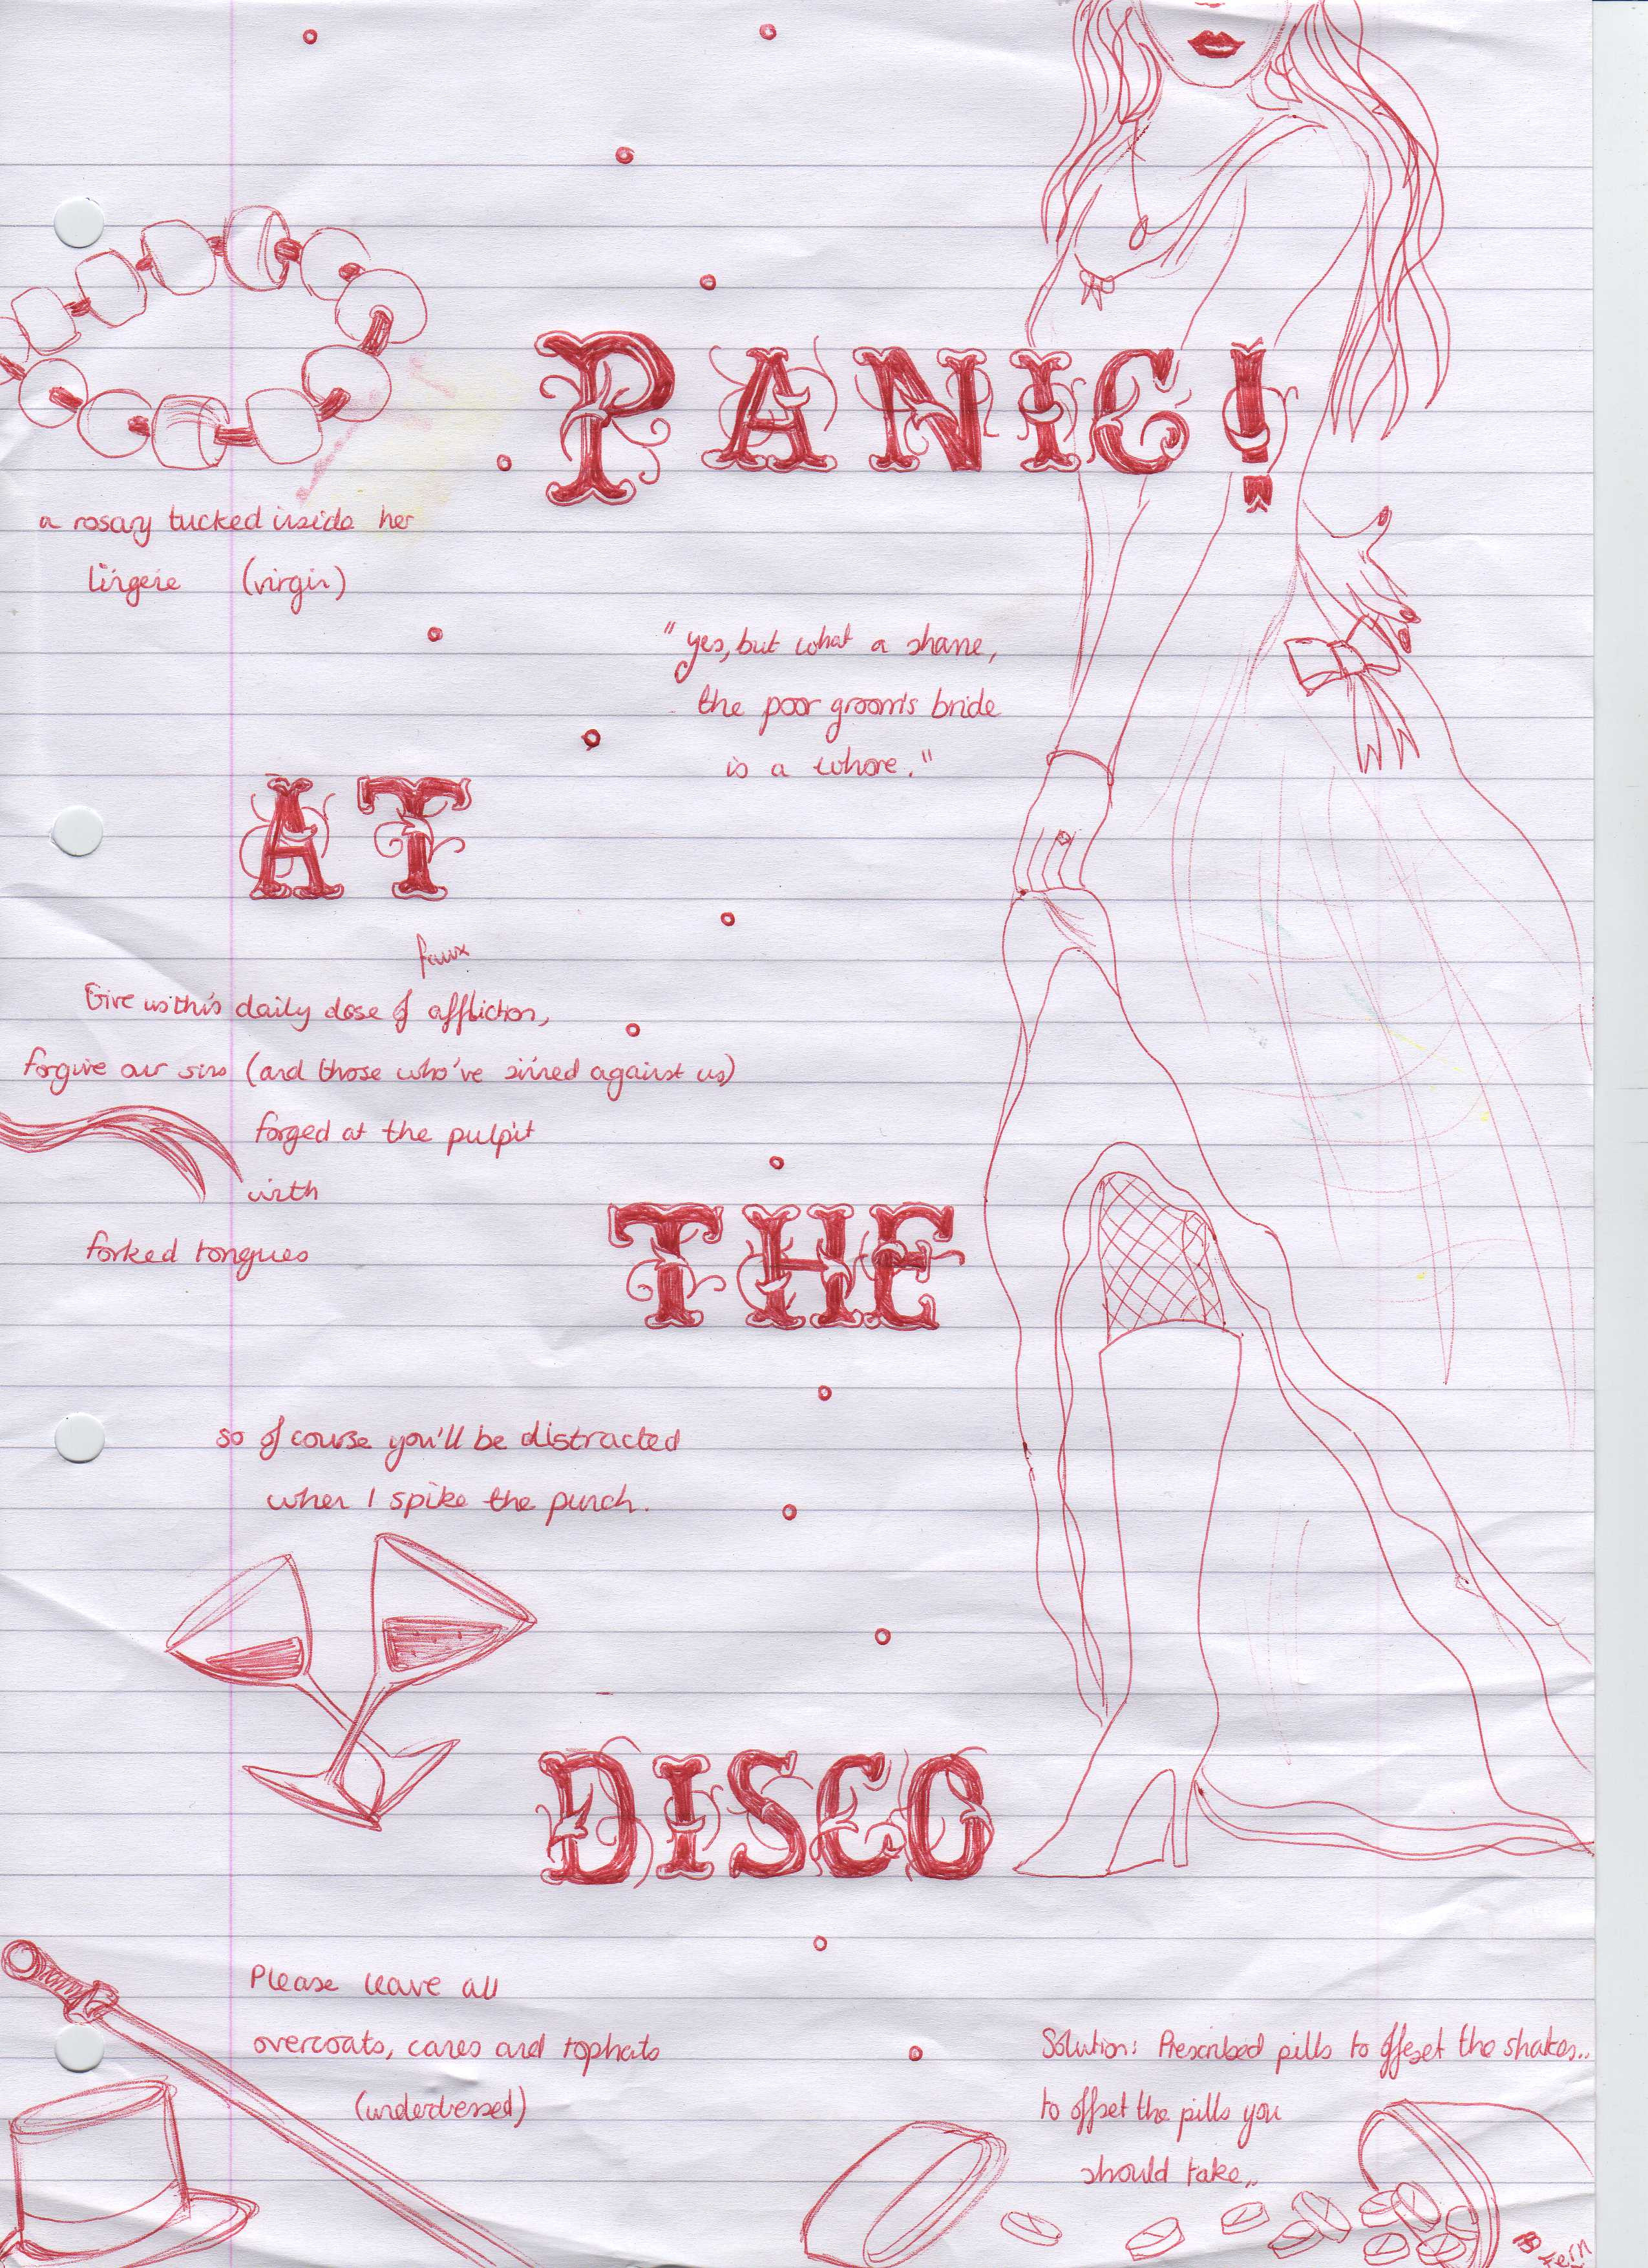 PANIC!
a rosary tucked inside her
lingerie (virgin)
"yes, but what a shame,
the poor groom's bride
is a whore."
AT
faux
Give us this daily dose of affliction,
forgive our sins (and those who've sinned against us)
forged at the pulpit
with
forked tongues
THE
so of course you'll be distracted
when I spike the punch.
DISCO
Please leave all
overcoats, canes and tophats
(underdressed)
Solution: Prescribed pills to offset the shakes..
to offset the pills you
should take..
Fern